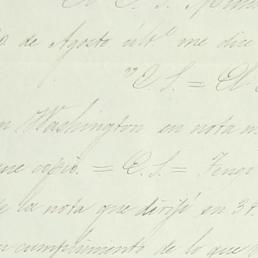 de Agosto últº me dice
"E. S. = El
Washington en nota
copio. = E. S. = Tengo
la nota que dirijí en 31
cumplimento de lo que